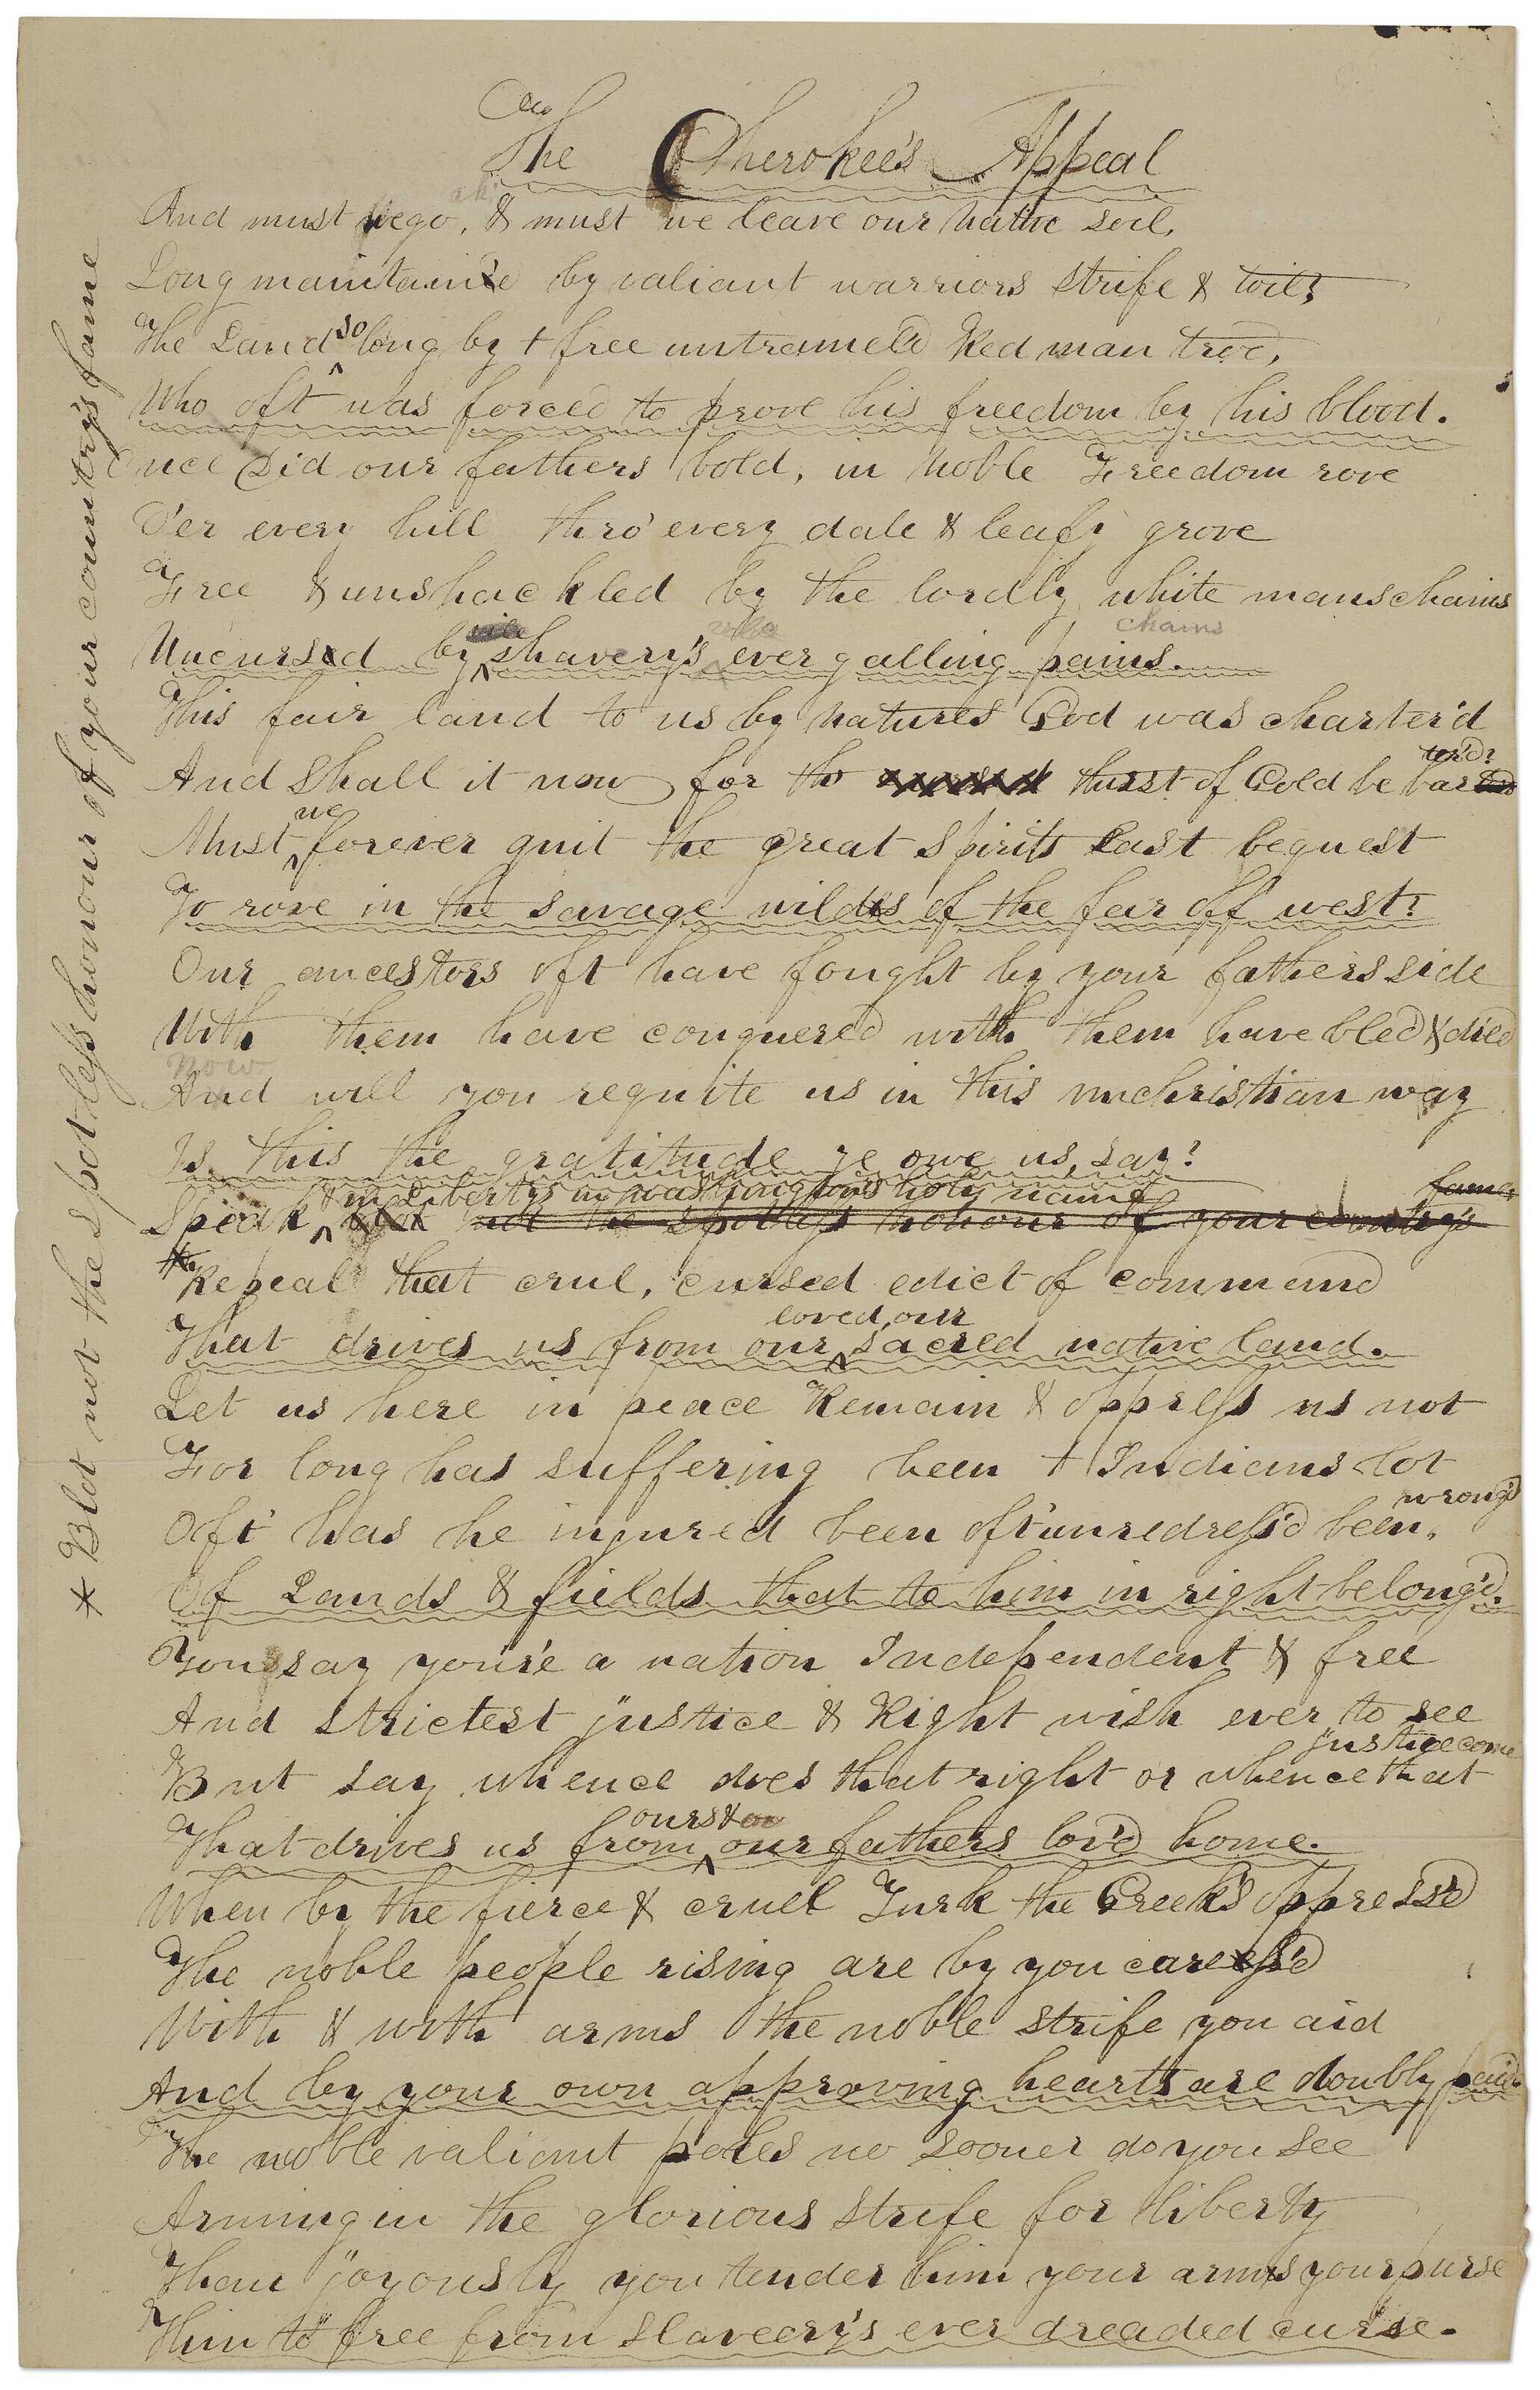 The Cherokee's Appeal
And must we go, & must we leave our native soil,
Long maintain'd by valiant warriors strife & toil;
The Land so long by t free untrameld Red man trod,
Who oft was forced to prove his freedom by his blood.
Once Did our fathers bold, in noble Freedom rove
O'er every hill thro' every dale & leafy grove
Free & unshackled by the lordly white mans chains
chains
Uncursed by slavery's ever galling pains.
This fair land to us by natures God was charter'd
And shall it now for the thirst of Gold be barter'd?
Must we forever quit the great Spirits Last bequest
To rove in the savage wilds of the far off west?
Our ancestors oft have fought by your fathers side
With them have conquered with them have bled & died
Now
And will you requite us in this unchristian way
Is this the gratitude ye owe us, say?
& in Liberty's in washingtons holy name
Speak blot not the spotless honour of your country's fame
* Blot not the spotless honour of your country's fame
Repeal that crul, cursed edict of command
That drives us from our loved, our sacred native land.
Let us here in peace Remain & oppress us not
For long has suffering been t Indians lot
Oft has he injured been oft' unredress'd been, wrong'd
Of Lands & fields that to him in right belong'd.
You say you're a nation Independent & free
And strictest justice & Right wish ever to see
But say whence does that right or whence that justice come
That drives us from ours & our fathers lov'd home.
When by the fierce & cruel Turk the Greeks oppress'd
The noble people rising are by you caress'd
With & with arms the noble strife you aid
And by your own approving hearts are doubly paid.
The noble valiant poles no sooner do you see
Arming in the glorious strife for liberty
Than joyously you tender him your arms your purse
Him to free from slaveery's ever dreaded curse.